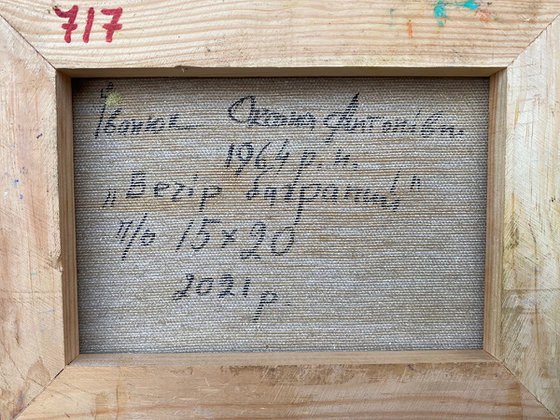 717
Іванюк Оксана Антонівн.
1964 р. н.
„Вечір багряний"
п/о 15×20
2021 р.